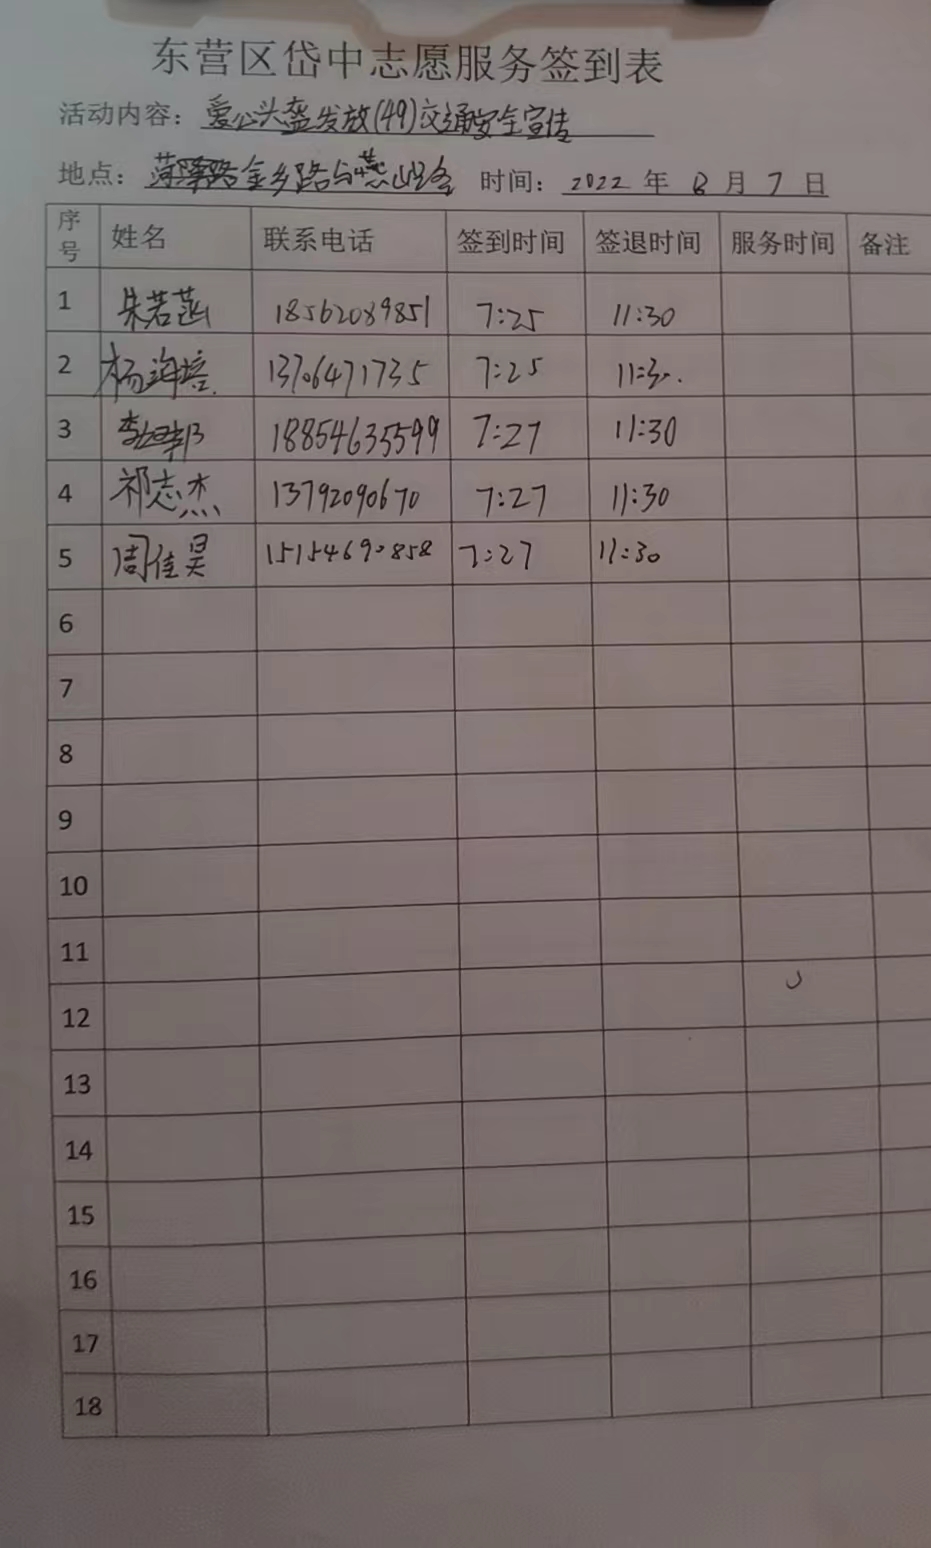 东营区岱中志愿服务签到表
活动内容：爱心头盔发放(49)交通安全宣传
地点：菏泽路金乡路与燕山路 时间：2022 年 8 月 7 日
序号 姓名 联系电话 签到时间 签退时间 服务时间 备注
1 朱若菡 18562089851 7:25 11:30
2 杨 培 13706471735 7:25 11:30.
3 李 邦 18854635599 7:27 11:30
4 祁志杰 13792090670 7:27 11:30
5 周佳昊 15154690858 7:27 11:30
6
7
8
9
10
11
12
13
14
15
16
17
18